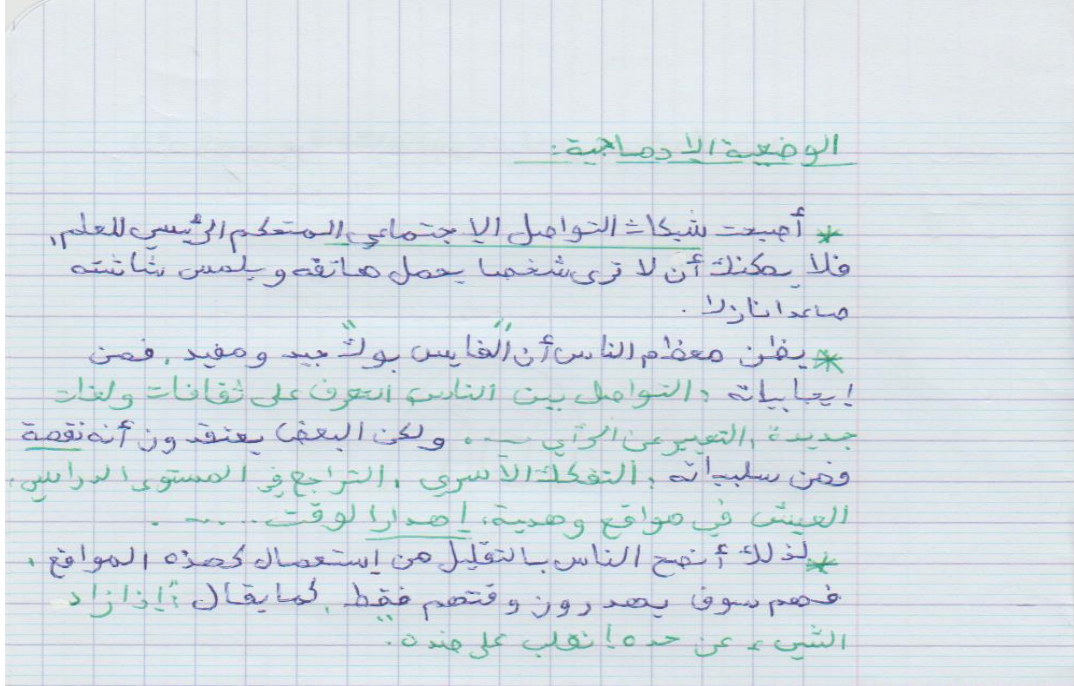 الوضعية الإدماجية:
* أصبحت شبكات التواصل الإجتماعي المتحكم الرئيسي للعلم,
فلا يمكنك أن لا ترى شخصا يحمل هاتفه ويلمس شاشته
صاعدا نازلا.
* يظن معظم الناس أن "الفايس بوك" جيد ومفيد, فمن
إيجابياته: التواصل بين الناس, التعرف على ثقافات ولغات
جديدة, التعبير عن الرأي ... ولكن البعض يعتقدون أنه نقمة
فمن سلبياته: التفكك الأسري, التراجع في المستوى الدراسي,
العيش في مواقع وهمية, إهدار الوقت.......
* لذلك أنصح الناس بالتقليل من إستعمال كهذه المواقع,
فهم سوف يهدرون وقتهم فقط, كما يقال "إذا زاد
الشيء عن حده إنقلب على ضده".